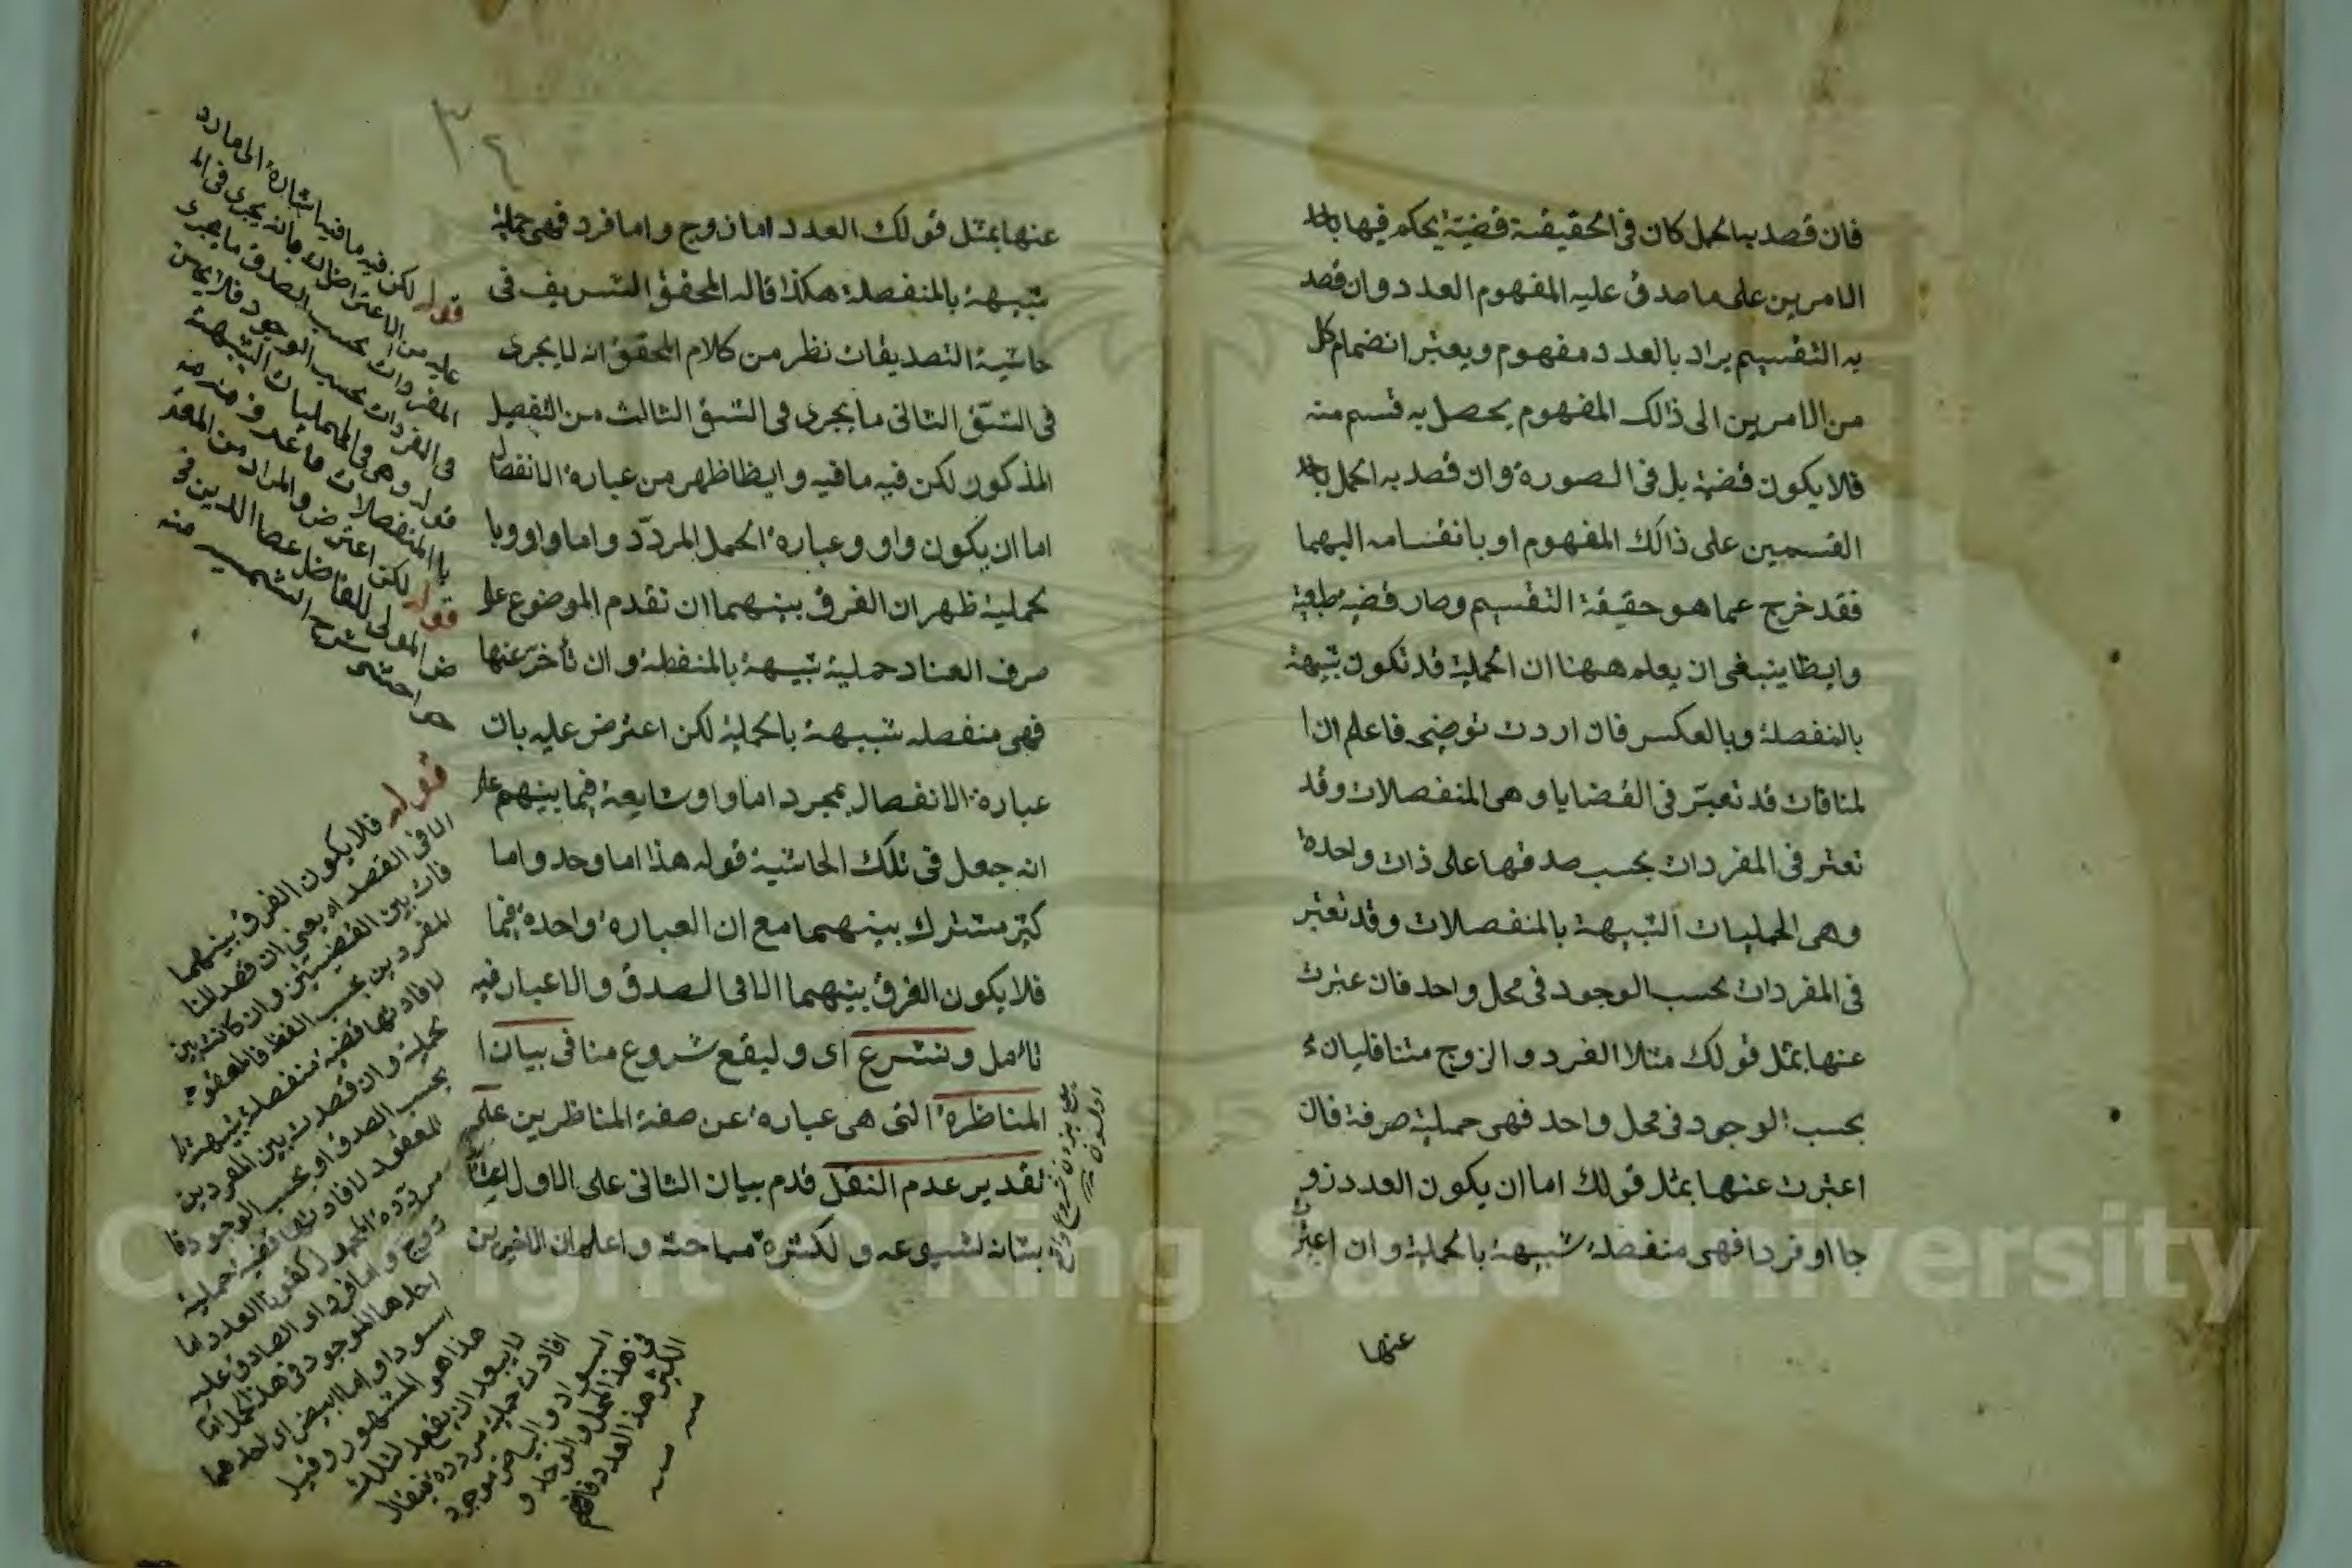 فان قصد به الحمل كان في الحقيقة قضية يحكم فيها باحد
الامرين على ما صدق عليه المفهوم العدد وان قصد
به التقسيم يراد بالعدد مفهوم ويعتبر انضمام كل
من الامرين الى ذالك المفهوم يحصل به قسم منه
فلا يكون قضية بل في الصورة وان قصد به الحمل باحد
القسمين على ذالك المفهوم او بانقسامه اليهما
فقد خرج عما هو حقيقة التقسيم وصار قضية طبعية
وايظا ينبغى ان يعلم ههنا ان الحملية قد تكون شبيهة
بالمنفصلة وبالعكس فان اردت توضيحه فاعلم ان ا
لمنافات قد تعتبر في القضايا وهى المنفصلات وقد
تعتبر في المفردات بحسب صدقها على ذات واحدة
وهى الحمليات الشبيهة بالمنفصلات وقد تعتبر
في المفردات بحسب الوجود في محل واحد فان عبرت
عنها بمثل قولك مثلا الفرد والزوج متنافيان
بحسب الوجود في محل واحد فهى حملية صرفة فان
اعتبرت عنها بمثل قولك اما ان يكون العدد زو
جا او فردا فهى منفصلة شبيهة بالحملية وان اعتبرت
عنها
٣٤
عنها بمثل قولك العدد اما زوج واما فرد فهى حملية
شبيهة بالمنفصلة هكذا قاله المحقق الشريف في
حاشية التصديقات نظر من كلام المحقق انه لما يجرى
في الشق الثانى ما يجرى في الشق الثالث من التفصيل
المذكور لكن فيه ما فيه وايظا ظهر من عبارة الانفصال
اما ان يكون واو وعبارة الحمل المردد واما واو وبا
لحملية ظهر ان الفرق بينهما ان تقدم الموضوع على
صرف العناد حملية شبيهة بالمنفصلة وان تأخر عنها
فهى منفصله شبيهة بالحملية لكن اعترض عليه بان
عبارة الانفصال بمجرد اما واو شايعة فيما بينهم على
انه جعل في تلك الحاشية قوله هذا اما وحد واما
كثير مشترك بينهما مع ان العبارة واحدة فيها
فلا يكون الفرق بينهما الا في الصدق والاعبار فيه
تأمل ونشرع اى وليقع شروع منا في بيان ا
المناظرة التى هى عبارة عن صفة المناظرين على
تقدير عدم النقل قدم بيان الثانى على الاول اعتنا
بشانه لشيوعه ولكثرة مباحثه واعلم ان الاخيرين
قوله لكن فيه ما فيه اشارة الى ما رد
عليه من الاعتراض بانه يجرى في الم
المفردات بحسب الصدق ما يجرى
في المفردات بحسب الوجود فلا
قوله وهى الحمليات الشبيهة
با المنفصلات
قوله لكن اعترض والمراد من المعتر
ض المولى الفاضل عصا الدين في
شرح الشمسيه منه
قوله فلا يكون الفرق بينهما
الا في القصد اه يعنى ان قصد المنا
فات بين القضيتين وان كانتا بين
المفردين بحسب الفظ فالمعقود
لافادتها قضية منفصلة شبيهة
بحملية وان قصدت بين المفردين
بحسب الصدق او بحسب الوجود فا
لمعقود لافادتها قضية حملية
مرددة المحمول كقولنا العدد اما
زوج واما فرد اى الصادق عليه
احدهما الموجود في هذ المحل اما
اسود او اما ابيض اى احدهما
هذا هو المشهور وقيل
لا يبعد ان يقصد لثلث
افادت حملية مرددة فيقال
السواد والبياض موجود
في هذا المحل والوحد و
الكثير هذا العدد فافهم
منه